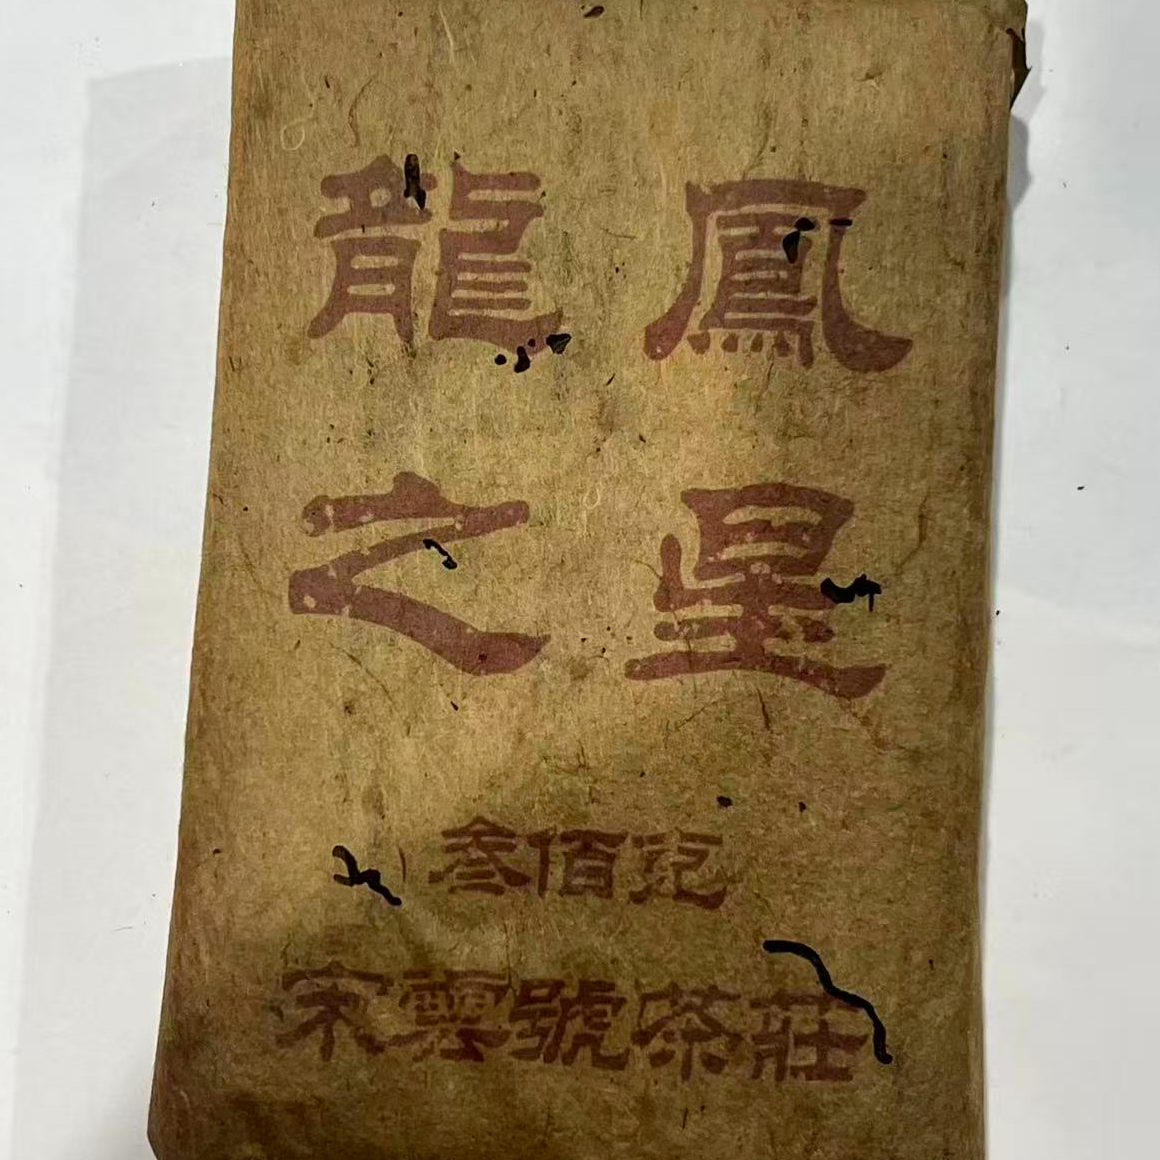 龍鳳
之星
叁佰克
宋雲號茶莊